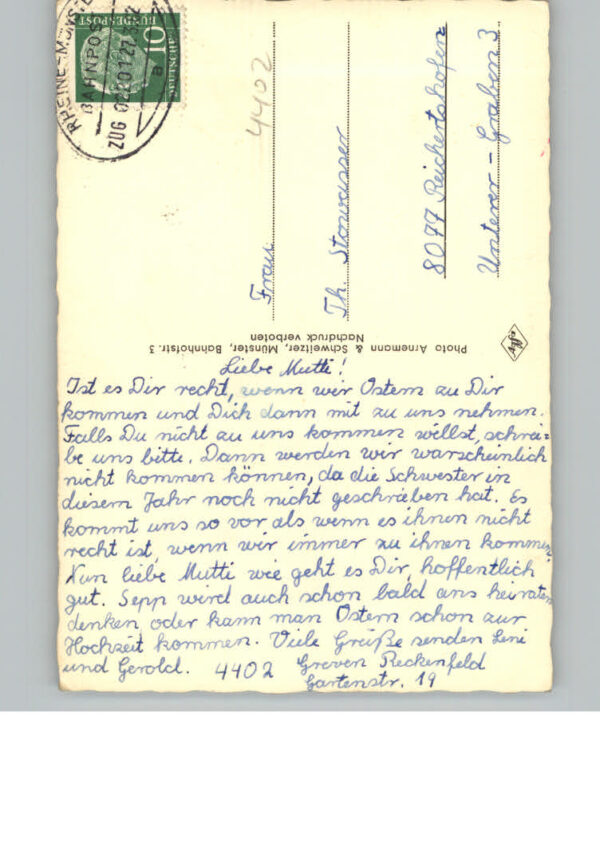 RHEINE-MÜNSTE
BAHNPOST
ZUG
a
DEUTSCHE
BUNDESPOST
10
4402
Frau
Th. Stowasser
8077 Reichertshofen
Unterer-Graben 3
Photo Arnemann & Schweitzer, Münster, Bahnhofstr. 3
Nachdruck verboten
Liebe Mutti!
Ist es Dir recht, wenn wir Ostern zu Dir
kommen und Dich dann mit zu uns nehmen.
Falls Du nicht zu uns kommen willst, schrei=
be uns bitte. Dann werden wir warscheinlich
nicht kommen können, da die Schwester in
diesem Jahr noch nicht geschrieben hat. Es
kommt uns so vor als wenn es ihnen nicht
recht ist, wenn wir immer zu ihnen kommen
Nun liebe Mutti wie geht es Dir, hoffentlich
gut. Sepp wird auch schon bald ans heiraten
denken, oder kann man Ostern schon zur
Hochzeit kommen. Viele Grüße senden Leni
und Gerold. 4402 Greven Reckenfeld
Gartenstr. 19